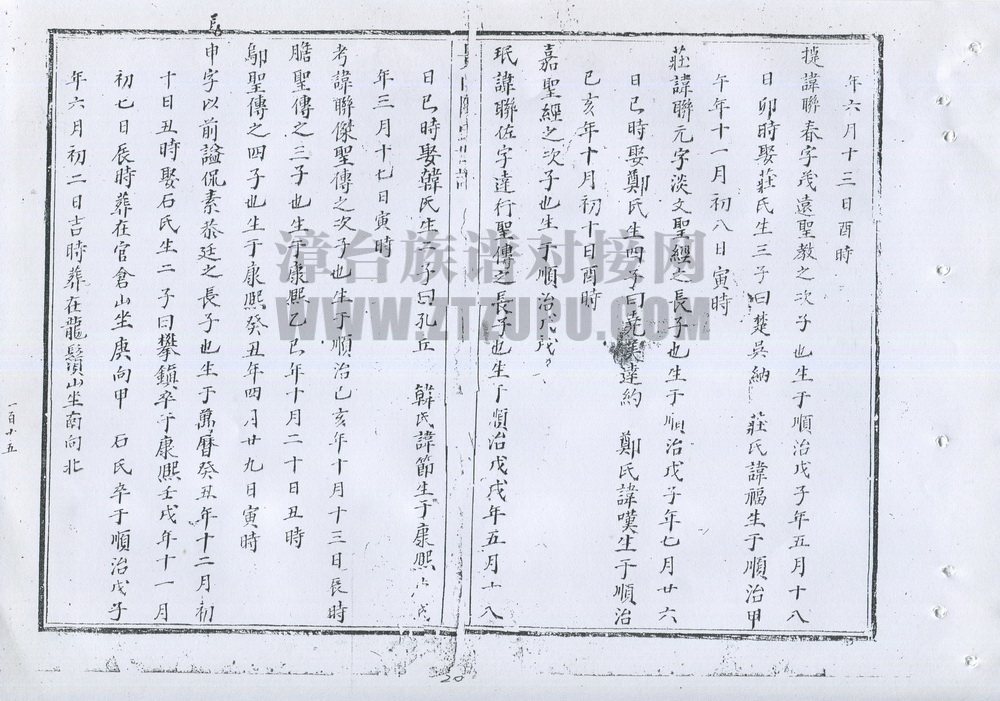 年六月十三日酉時
諱聯春字茂遠聖教之次子也生于順治戊子年五月十八
日卯時娶莊氏生三子曰楚吳納 莊氏諱福生于順治甲
午年十一月初八日寅時
莊諱聯元字淡文聖經之長子也生于順治戊子年七月廿六
日巳時娶鄭氏生四子曰 達約 鄭氏諱嘆生于順治
己亥年十月初十日酉時
嘉聖經之次子也生于順治戊戌
珉諱聯佐字達行聖傳之長子也生于順治戊戌年五月十八
日巳時娶韓氏生二子曰孔丘 韓氏諱節生于康熙 戌
年三月十七日寅時
考諱聯傑聖傳之次子也生于順治己亥年十月十三日辰時
膽聖傳之三子也生于康熙乙巳年十月二十日丑時
鄔聖傳之四子也生于康熙癸丑年四月廿九日寅時
長
申字以前謚侃素恭廷之長子也生于萬曆癸丑年十二月初
十日丑時娶石氏生二子曰攀鎮卒于康熙壬戌年十一月
初七日辰時葬在官倉山坐庚向甲 石氏卒于順治戊子
年六月初二日吉時葬在龍鬚山坐南向北
一百十五
20
漳台族谱对接网
WWW.ZTZUPU.COM